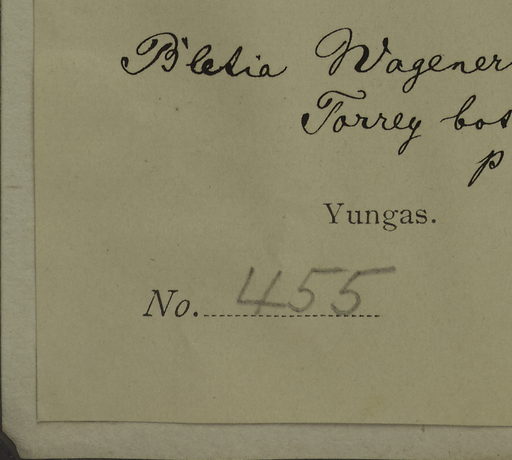 Bletia Wagener
Torrey bot
p
Yungas.
No. 455